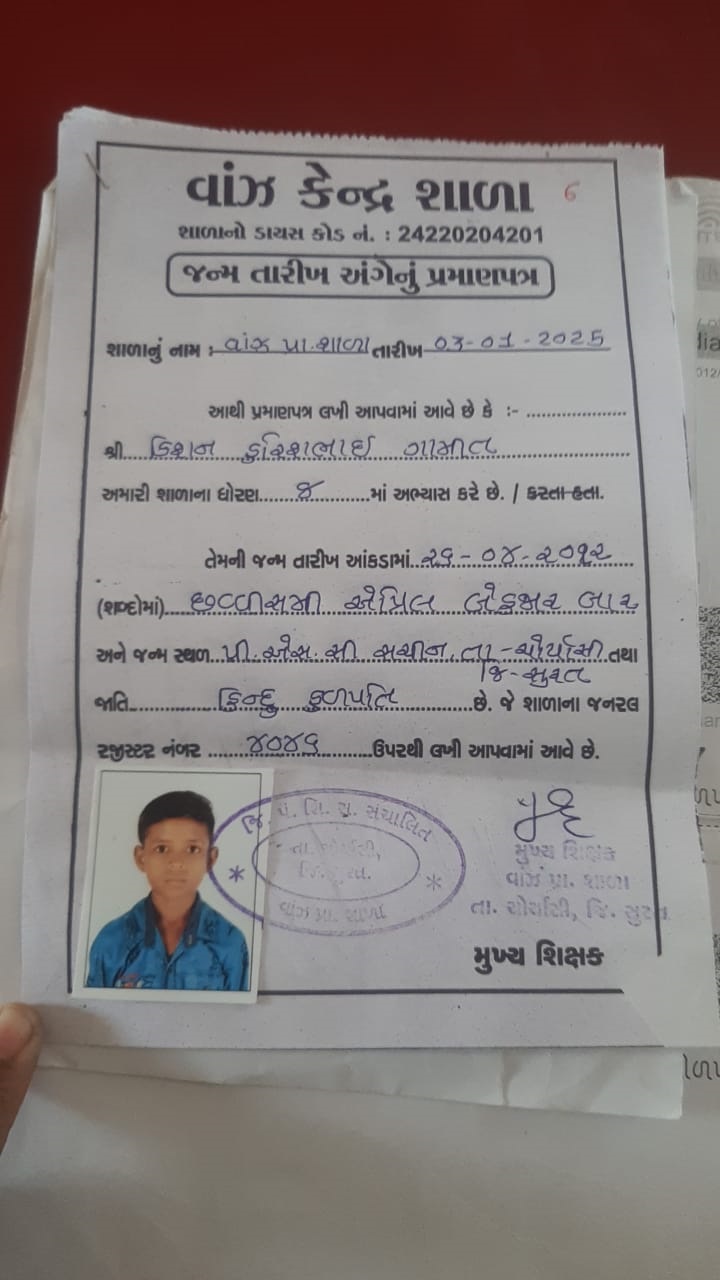 વાંઝ કેન્દ્ર શાળા
6
શાળાનો ડાયસ કોડ નં. : 24220204201
જન્મ તારીખ અંગેનું પ્રમાણપત્ર
શાળાનું નામ : વાંઝ પ્રા. શાળા તારીખ 03-01-2025
આથી પ્રમાણપત્ર લખી આપવામાં આવે છે કે :- ....................
શ્રી.... કિશન ગામીત
અમારી શાળાના ધોરણ.......૪..........માં અભ્યાસ કરે છે. / કરતા હતા.
તેમની જન્મ તારીખ આંકડામાં..૨૬-૦૪-૨૦૧૨.....
(શબ્દોમાં)....છવ્વીસમી એપ્રિલ બેહજાર બાર
અને જન્મ સ્થળ..પી.એસ.સી સચીન, તા-ચોર્યાસી તથા
જિ-સુરત
જાતિ.............હિન્દુ હળપતિ............છે. જે શાળાના જનરલ
રજીસ્ટર નંબર .......૪૦૪૬.........ઉપરથી લખી આપવામાં આવે છે.
જિ. પં. શિ. સ. સંચાલિત
તા. ચોર્યાસી,
જિ. સુરત.
વાંઝ પ્રા. શાળા
મુખ્ય શિક્ષક
વાંઝ પ્રા. શાળા
તા. ચોર્યાસી, જિ. સુરત
મુખ્ય શિક્ષક